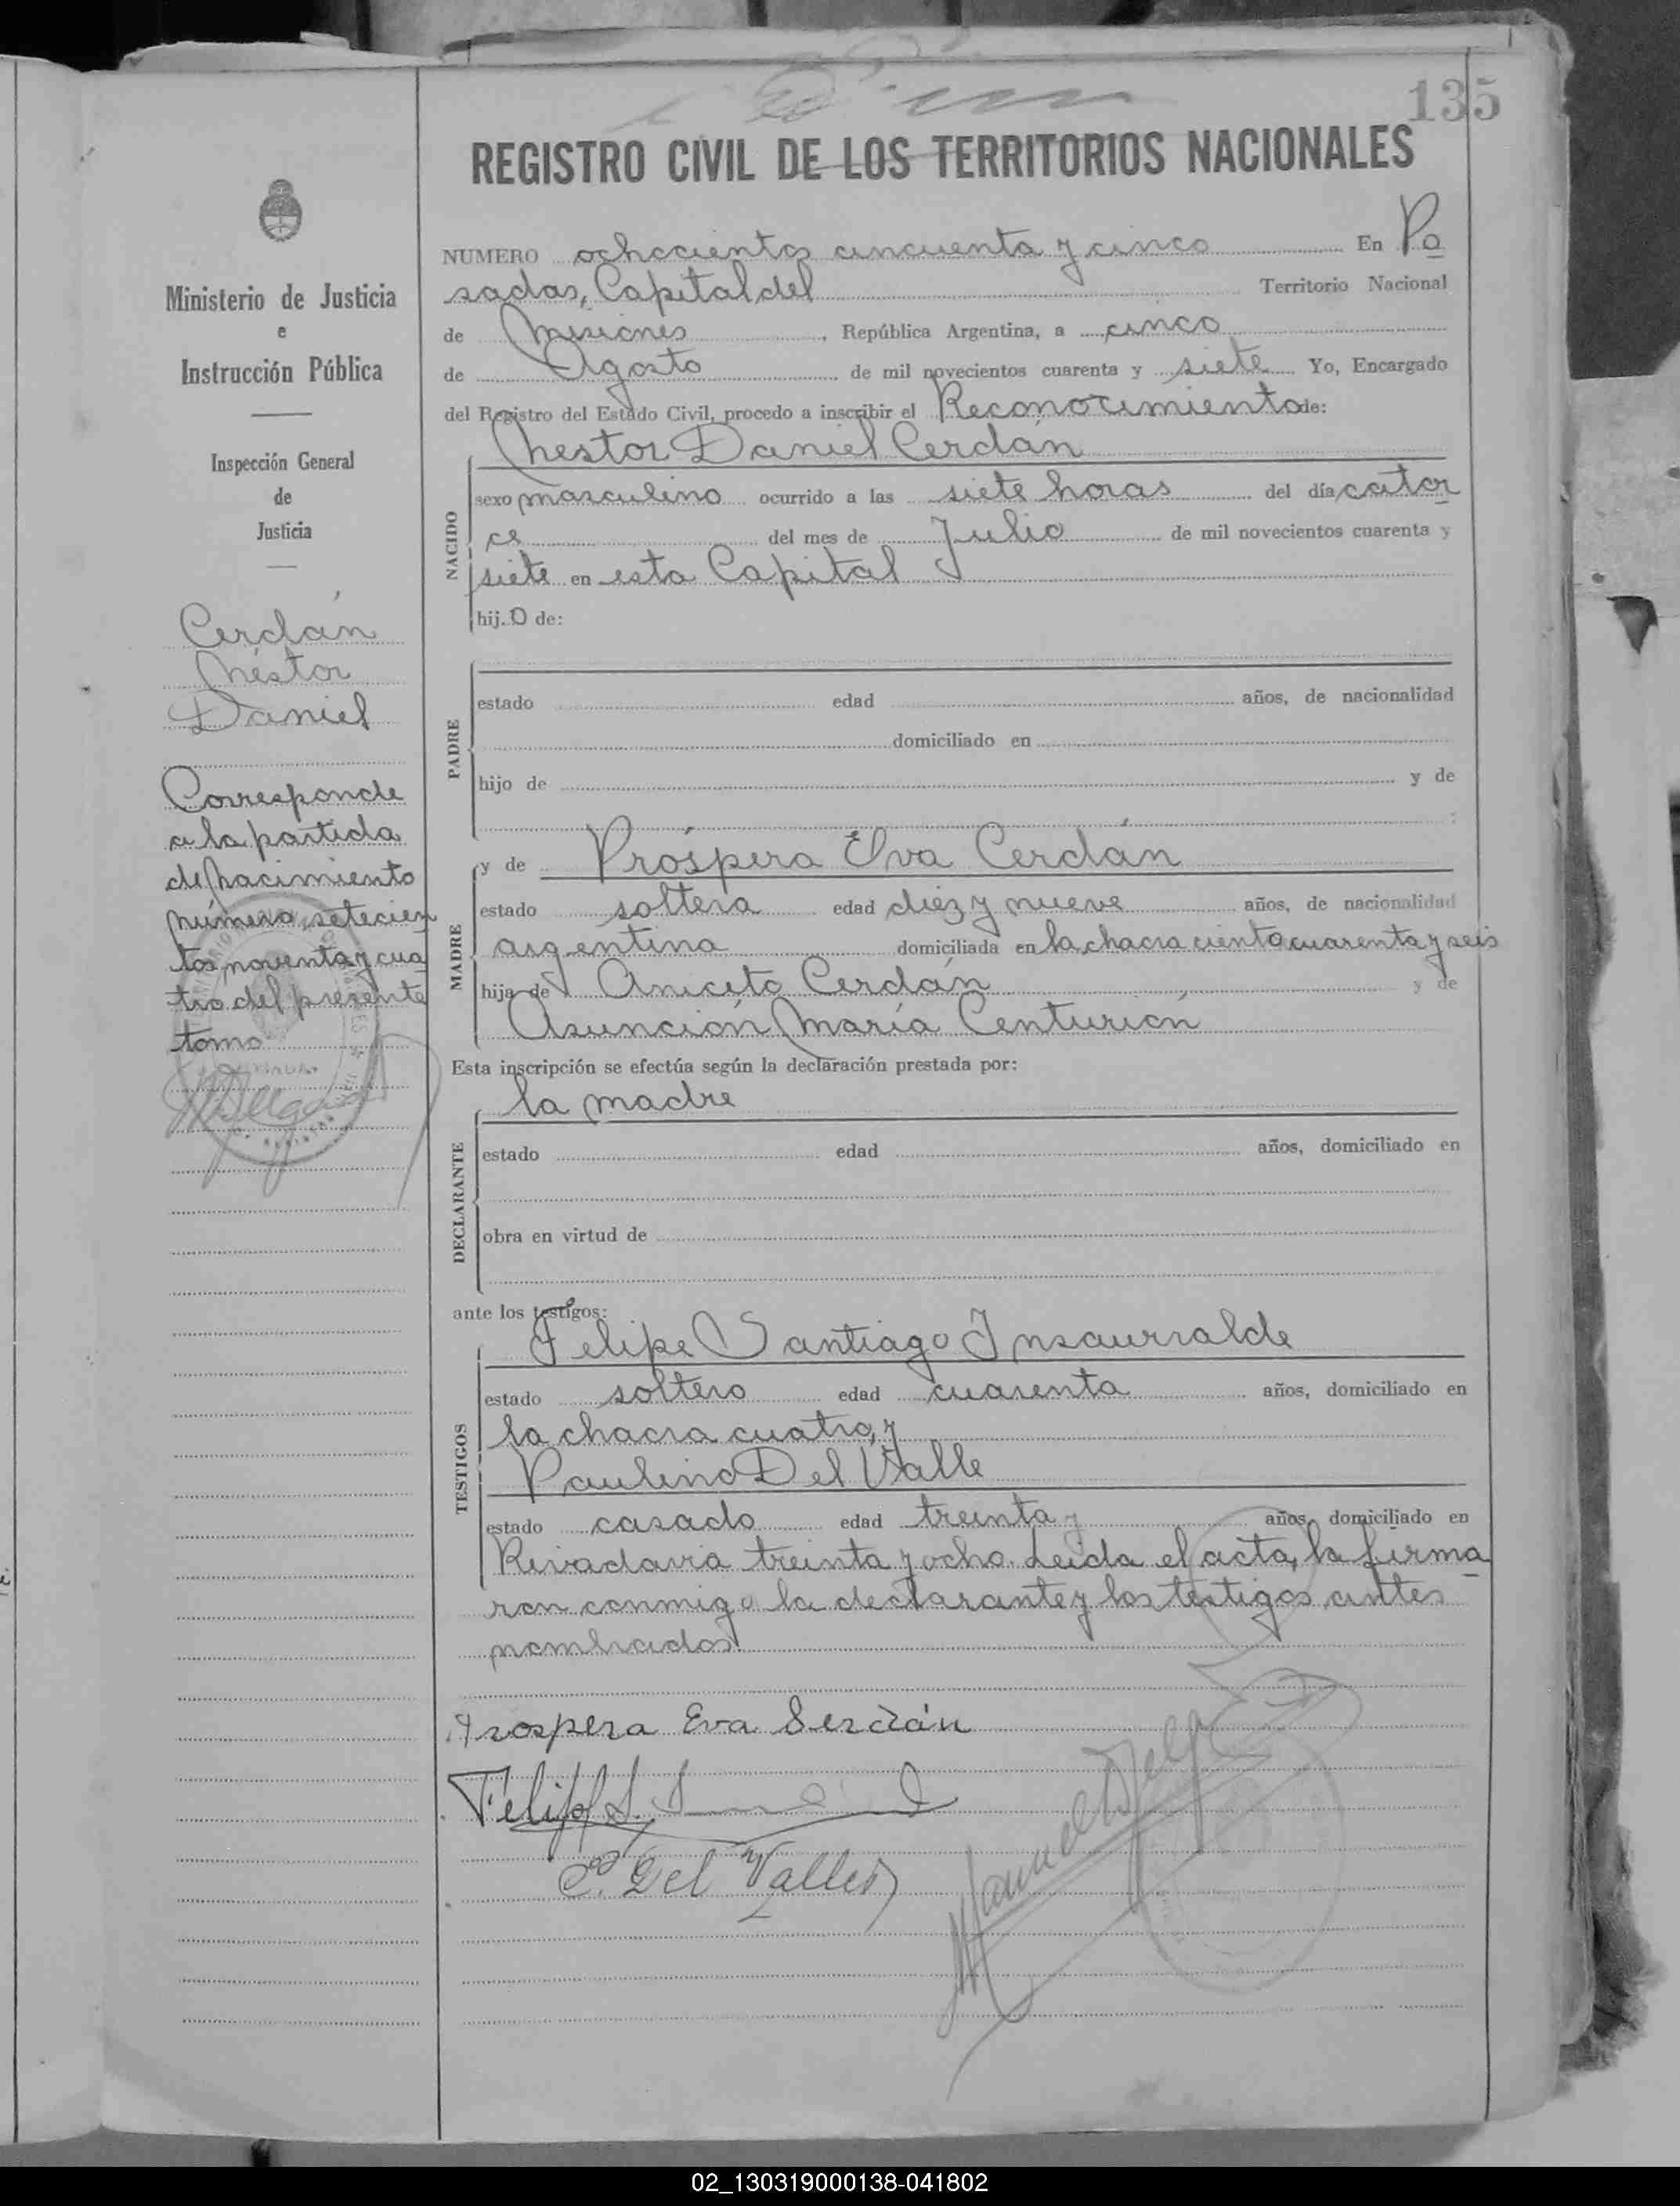 135
REGISTRO CIVIL DE LOS TERRITORIOS NACIONALES
Ministerio de Justicia
e
Instrucción Pública
Inspección General
de
Justicia
Cerdán
Néstor
Daniel
Corresponde
a la partida
de nacimiento
número setecien
tos noventa y cua
tro del presente
tomo
NUMERO ochocientos cincuenta y cinco En Po
sadas, Capital del Territorio Nacional
de Misiones, República Argentina, a cinco
de Agosto de mil novecientos cuarenta y siete Yo, Encargado
del Registro del Estado Civil, procedo a inscribir el Reconocimiento de:
Nestor Daniel Cerdán
NACIDO
sexo masculino ocurrido a las siete horas del día cator
ce del mes de Julio de mil novecientos cuarenta y
siete en esta Capital
hijo de:
PADRE
estado edad años, de nacionalidad
domiciliado en
hijo de y de
;
MADRE
y de Próspera Elva Cerdán
estado soltera edad diez y nueve años, de nacionalidad
argentina domiciliada en la chacra ciento cuarenta y seis
hija de Aniceto Cerdán y de
Asunción María Centurión
Esta inscripción se efectúa según la declaración prestada por:
la madre
DECLARANTE
estado edad años, domiciliado en
obra en virtud de
ante los testigos:
TESTIGOS
Felipe Santiago Insaurralde
estado soltero edad cuarenta años, domiciliado en
la chacra cuatro, y
Paulino Del Valle
estado casado edad treinta y años, domiciliado en
Rivadavia treinta y ocho. Leída el acta, la firma
ron conmigo la declarante y los testigos antes
nombrados.
Prospera Eva Serdán
Felipe S.
P. Del Valle
Manuel Delga
02_130319000138-041802